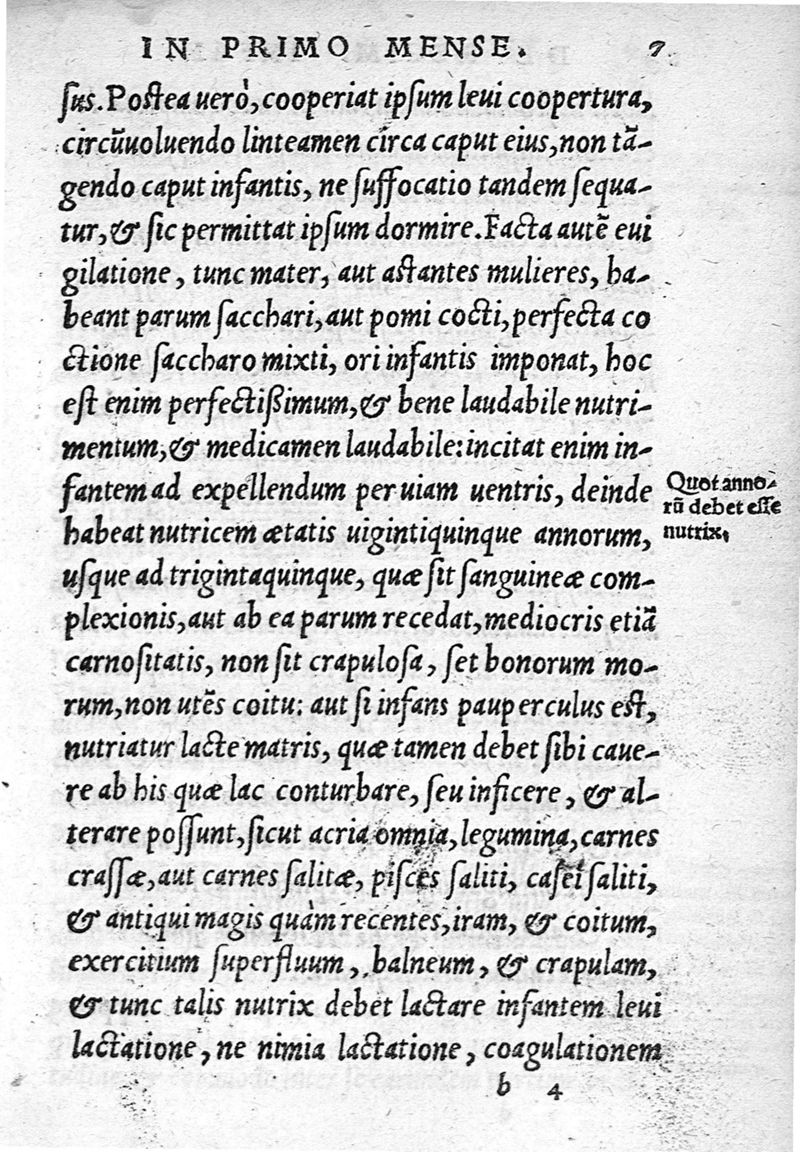 IN PRIMO MENSE. 7
ſus. Poſtea uerò, cooperiat ipſum leui coopertura,
circũuoluendo linteamen circa caput eius, non tã-
gendo caput infantis, ne ſuffocatio tandem ſequa-
tur, & ſic permittat ipſum dormire. Facta autẽ eui
gilatione, tunc mater, aut aſtantes mulieres, ha-
beant parum ſacchari, aut pomi cocti, perfecta co
ctione ſaccharo mixti, ori infantis imponat, hoc
eſt enim perfectiſsimum, & bene laudabile nutri-
mentum, & medicamen laudabile: incitat enim in-
fantem ad expellendum per uiam uentris, deinde
habeat nutricem ætatis uigintiquinque annorum,
uſque ad trigintaquinque, quæ ſit ſanguineæ com-
plexionis, aut ab ea parum recedat, mediocris etiã
carnoſitatis, non ſit crapuloſa, ſet bonorum mo-
rum, non utẽs coitu: aut ſi infans pauperculus eſt,
nutriatur lacte matris, quæ tamen debet ſibi caue-
re ab his quæ lac conturbare, ſeu inficere, & al-
terare poſſunt, ſicut acria omnia, legumina, carnes
craſſæ, aut carnes ſalitæ, piſces ſaliti, caſei ſaliti,
& antiqui magis quàm recentes, iram, & coitum,
exercitium ſuperfluum, balneum, & crapulam,
& tunc talis nutrix debet lactare infantem leui
lactatione, ne nimia lactatione, coagulationem
b 4
Quot anno-
rũ debet eſſe
nutrix.